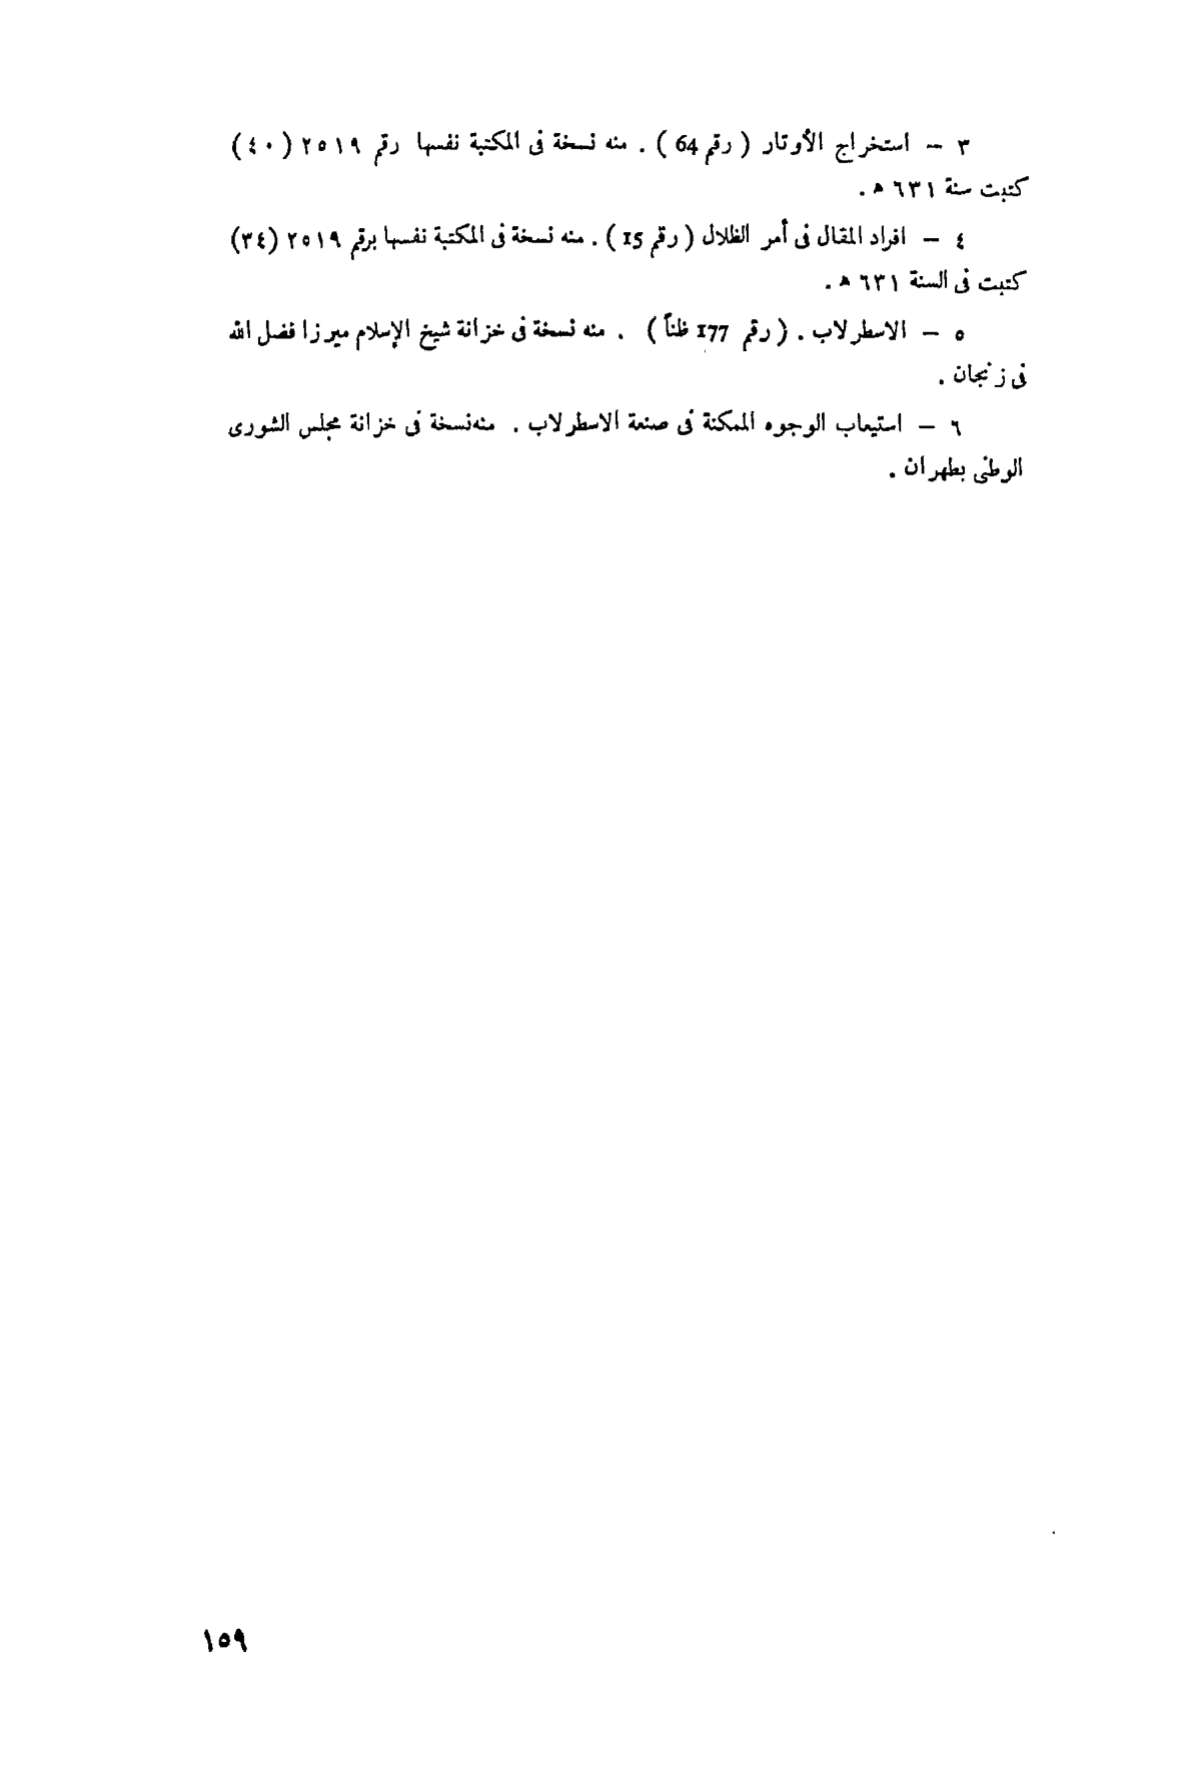 ٣ – استخراج الأوتار ( رقم 64 ) . منه نسخة فى المكتبة نفسها رقم ٢٥١٩ (٤٠)
كتبت سنة ٦٣١ ه .
٤ – افراد المقال فى أمر الظلال ( رقم 15 ) . منه نسخة فى المكتبة نفسها برقم ٢٥١٩ (٣٤)
كتبت فى السنة ٦٣١ ه .
٥ – الاسطرلاب . ( رقم 177 ظناً ) . منه نسخة فى خزانة شيخ الإسلام ميرزا فضل الله
فى زنجان .
٦ – استيعاب الوجوه الممكنة فى صنعة الاسطرلاب . منه نسخة فى خزانة مجلس الشورى
الوطنى بطهران .
١٥٩